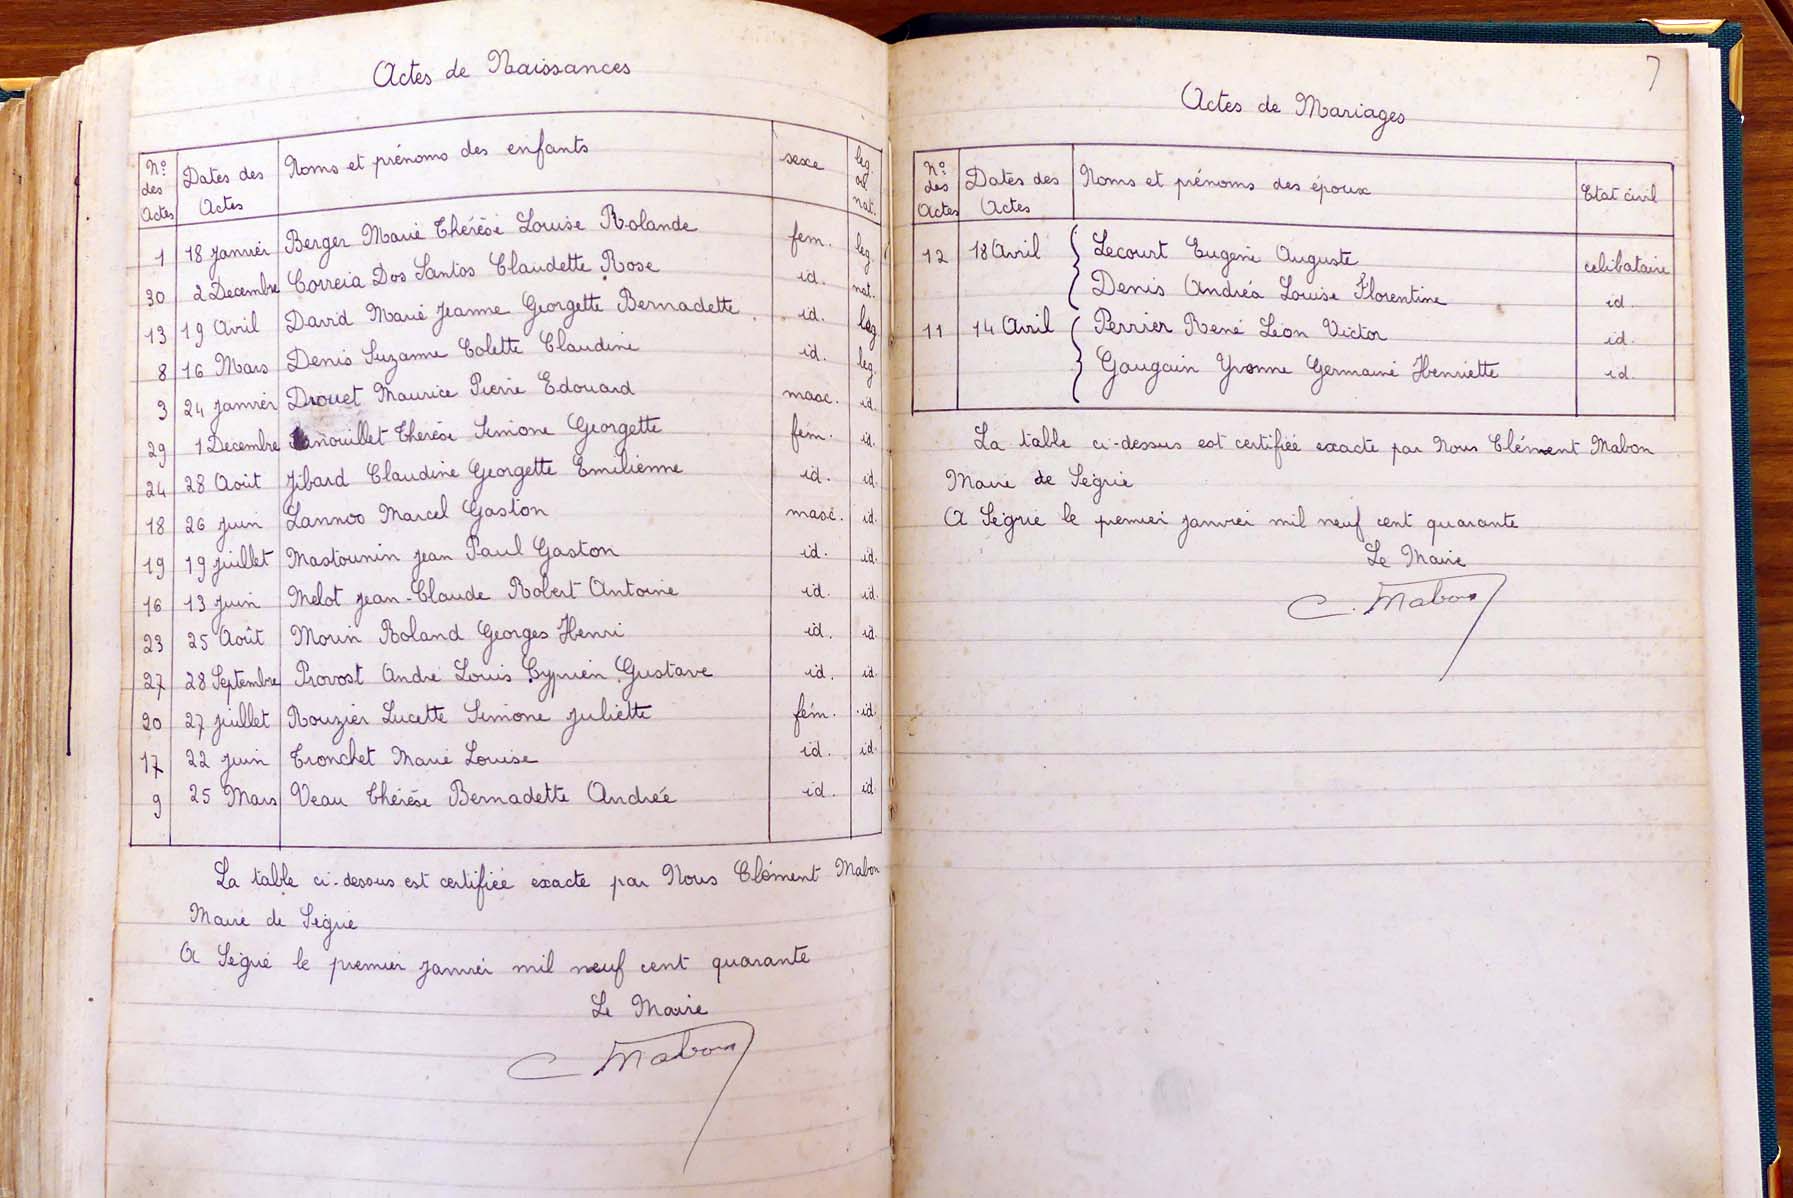 Actes de Naissances
Nos des Actes | Dates des Actes | Noms et prénoms des enfants | sexe | leg. ou nat.
1 | 18 janvier | Berger Marie Thérèse Louise Rolande | fem. | leg.
30 | 2 Decembre | Correia Dos Santos Claudette Rose | id. | nat.
13 | 19 Avril | David Marie Jeanne Georgette Bernadette | id. | leg
8 | 16 Mars | Denis Suzanne Colette Claudine | id. | leg.
3 | 24 janvier | Drouet Maurice Pierre Edouard | masc. | id.
29 | 1 Decembre | Thérèse Simone Georgette | fem. | id.
24 | 28 Août | Jibard Claudine Georgette Emilienne | id. | id.
18 | 26 juin | Lannoo Marcel Gaston | masc. | id.
19 | 19 juillet | Mastounin Jean Paul Gaston | id. | id.
16 | 13 juin | Melot Jean-Claude Robert Antoine | id. | id.
23 | 25 Août | Morin Roland Georges Henri | id. | id.
27 | 28 Septembre | Provost André Louis Cyprien Gustave | id. | id.
20 | 27 juillet | Rouzier Lucette Simone Juliette | fém. | id.
17 | 22 juin | Tronchet Marie Louise | id. | id.
9 | 25 Mars | Veau Thérèse Bernadette Andrée | id. | id.
La table ci-dessus est certifiée exacte par Nous Clément Mabon
Maire de Ségrie
A Ségrie le premier janvier mil neuf cent quarante
Le Maire
C. Mabon
7
Actes de Mariages
Nos des Actes | Dates des Actes | Noms et prénoms des époux | Etat civil
12 | 18 Avril | Lecourt Eugène Auguste | celibataire
Denis Andréa Louise Florentine | id.
11 | 14 Avril | Perrier René Léon Victor | id.
Gaugain Yvonne Germaine Henriette | id.
La table ci-dessus est certifiée exacte par Nous Clément Mabon
Maire de Ségrie
A Ségrie le premier janvier mil neuf cent quarante
Le Maire
C. Mabon